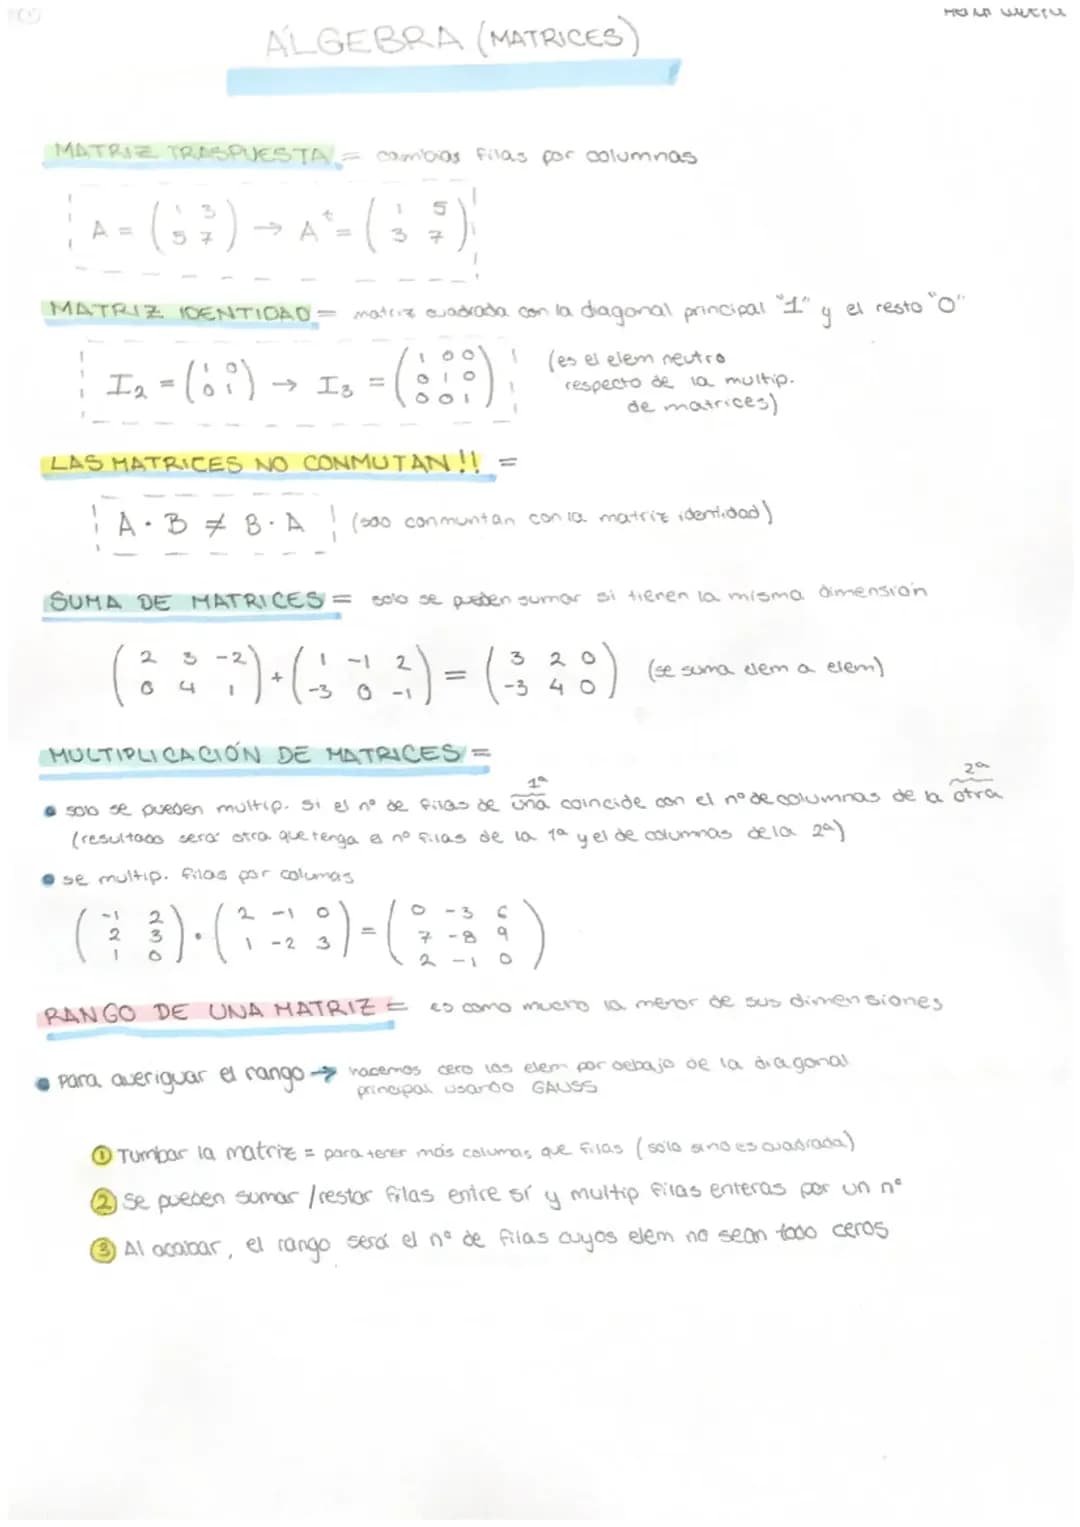 ÁLGEBRA (MATRICES)
MATRIZ TRASPUESTA = cambias filas por columnas
A = ( 1 3 / 5 7 ) → Aᵗ = ( 1 5 / 3 7 )
MATRIZ IDENTIDAD = matriz cuadrada con la diagonal principal "1" y el resto "0"
I₂ = ( 1 0 / 0 1 ) → I₃ = ( 1 0 0 / 0 1 0 / 0 0 1 )
(es el elem neutro
respecto de la multip.
de matrices)
LAS MATRICES NO CONMUTAN!! =
A · B ≠ B · A (solo conmuntan con la matriz identidad)
SUMA DE MATRICES = solo se pueden sumar si tienen la misma dimensión
( 2 3 -2 / 0 4 1 ) + ( 1 -1 2 / -3 0 -1 ) = ( 3 2 0 / -3 4 0 ) (se suma elem a elem)
MULTIPLICACIÓN DE MATRICES =
1ª 2ª
• solo se pueden multip. si el nº de filas de una coincide con el nº de columnas de la otra
(resultado será otra que tenga el nº filas de la 1ª y el de columnas de la 2ª)
• se multip. filas por columas
( -1 2 / 2 3 / 1 0 ) · ( 2 -1 0 / 1 -2 3 ) = ( 0 -3 6 / 7 -8 9 / 2 -1 0 )
RANGO DE UNA MATRIZ = es como mucho la menor de sus dimensiones
• Para averiguar el rango → hacemos cero los elem por debajo de la diagonal
principal usando GAUSS
① Tumbar la matriz = para tener más columas que filas (solo si no es cuadrada)
② Se pueden sumar /restar filas entre sí y multip filas enteras por un nº
③ Al acabar, el rango será el nº de filas cuyos elem no sean todo ceros